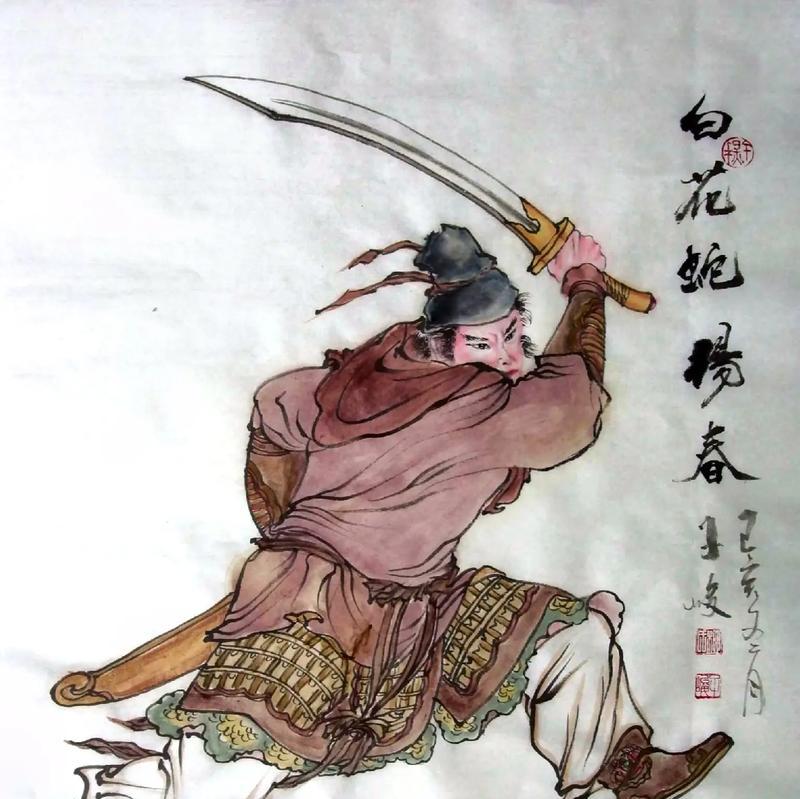 白花蛇楊春
己亥二月
王峻